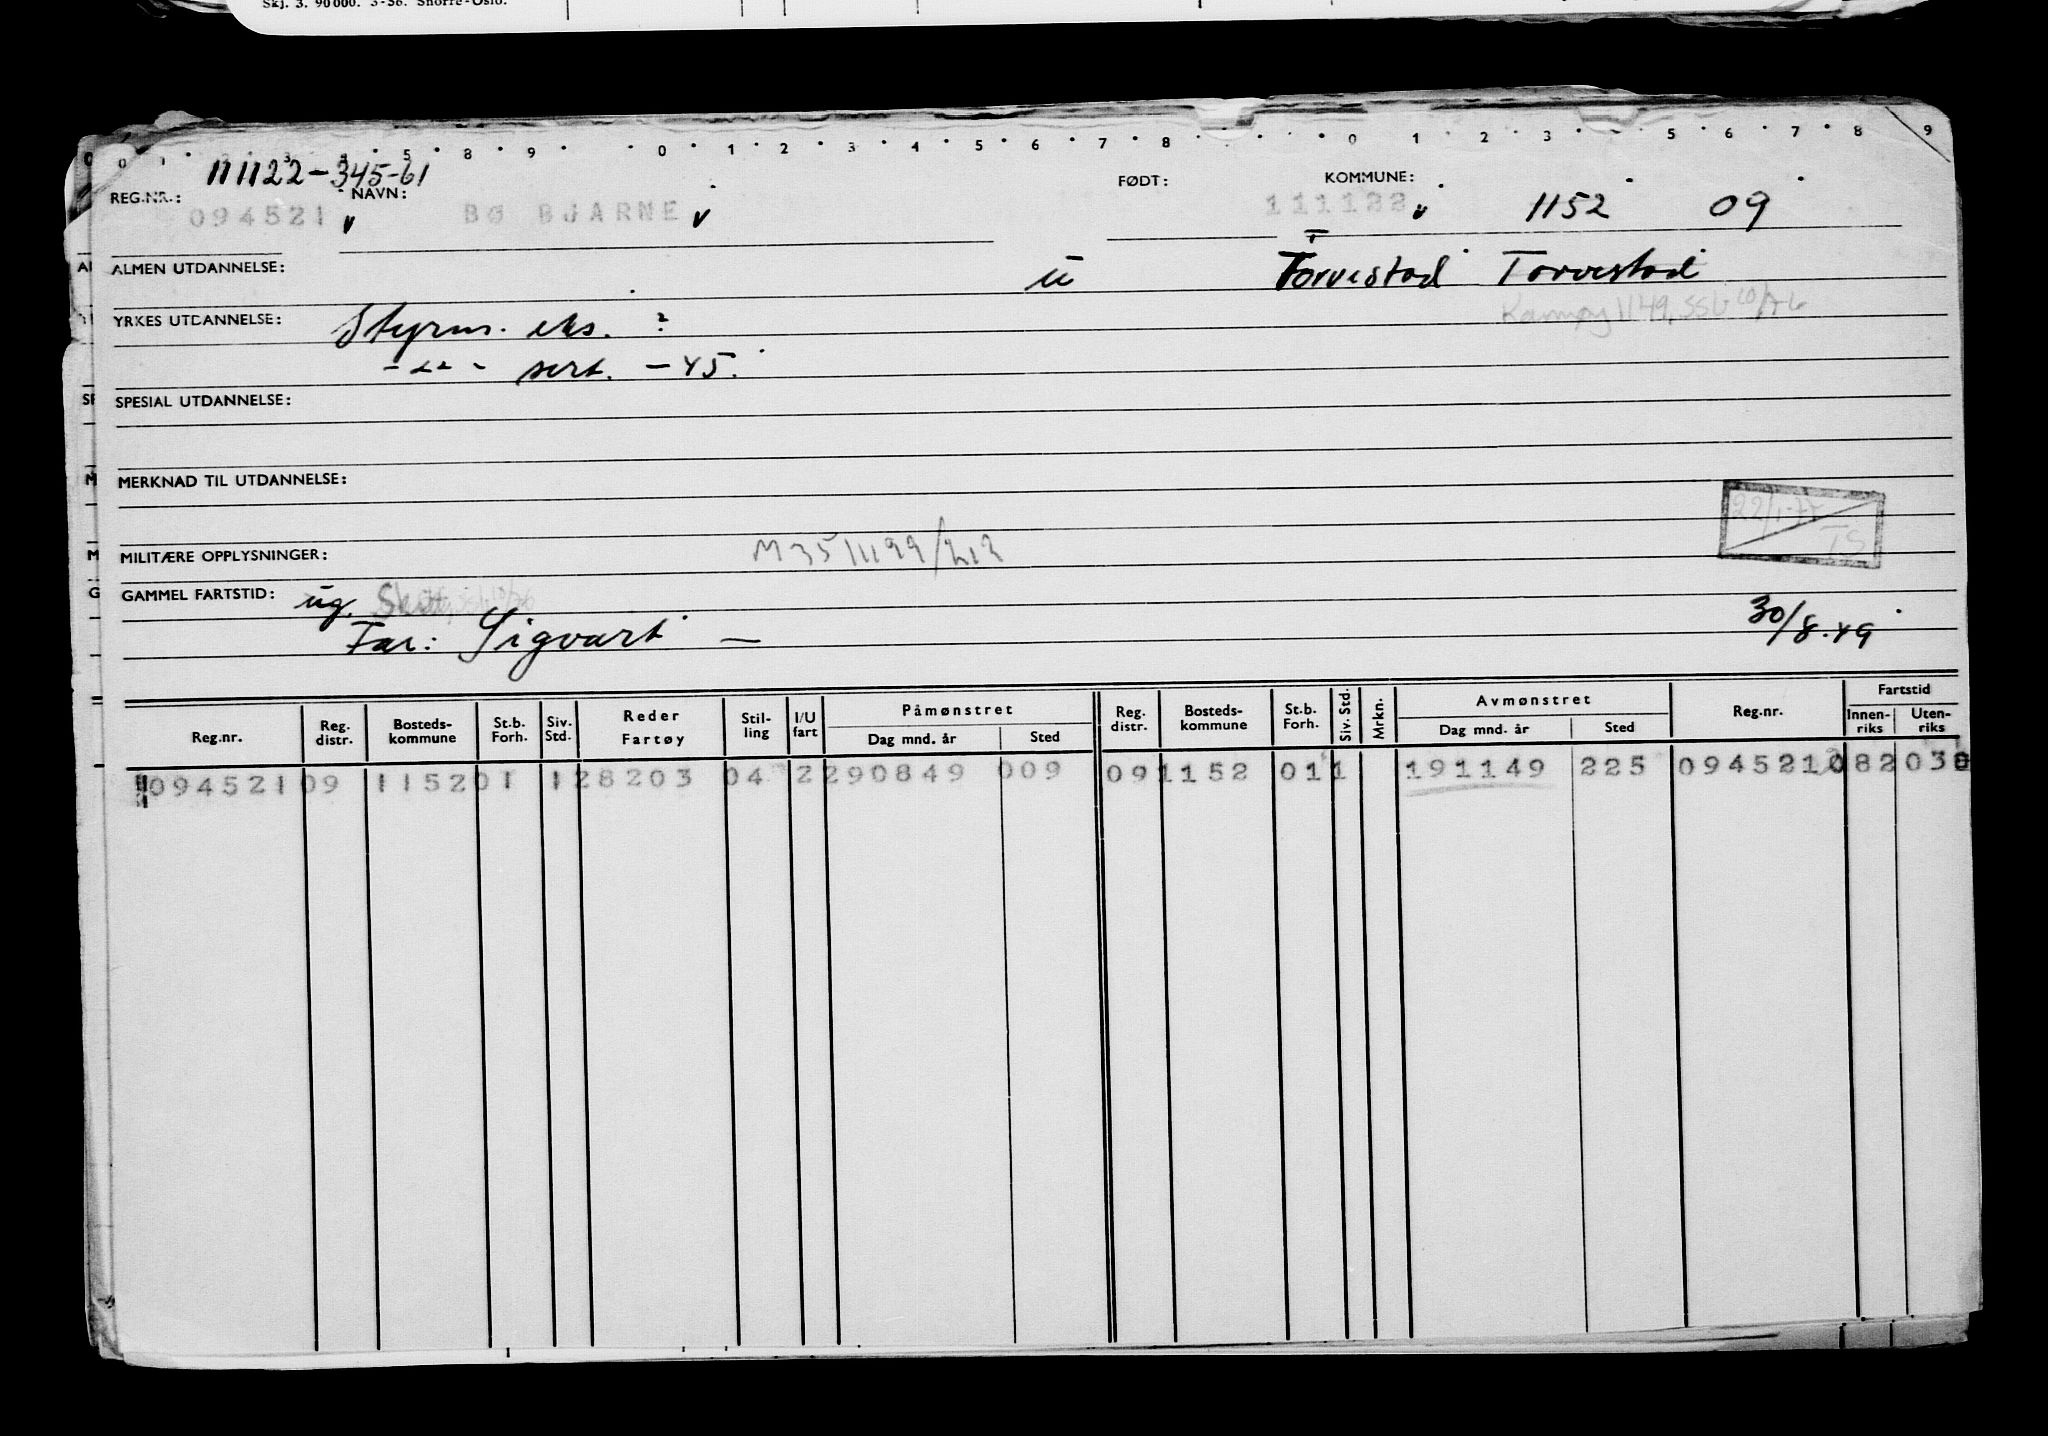 Skj. 3. 90000. 3-56. Snorre-Oslo.
111122-345-61
REG.NR.: 094521 NAVN: BØ BJARNE FØDT: 111122 KOMMUNE: 1152 09
ALMEN UTDANNELSE: u Torvestad Torvestad
YRKES UTDANNELSE: Styrm. eks. ? Karmøy 1149,
-"- sert. -45.
SPESIAL UTDANNELSE:
MERKNAD TIL UTDANNELSE:
MILITÆRE OPPLYSNINGER: M3511199/212
GAMMEL FARTSTID: ug.
Far: Sigvart — 30/8.49
Reg.nr. Reg. distr. Bosteds-kommune St.b. Forh. Siv. Std. Reder Fartøy Stil-ling I/U fart Påmønstret Dag mnd. år Sted Reg. distr. Bosteds-kommune St.b. Forh. Siv. Std. Mrkn. Avmønstret Dag mnd. år Sted Reg.nr. Fartstid Innen-riks Uten-riks
094521 09 1152 01 1 28203 04 2 290849 009 09 1152 01 1 191149 225 094521